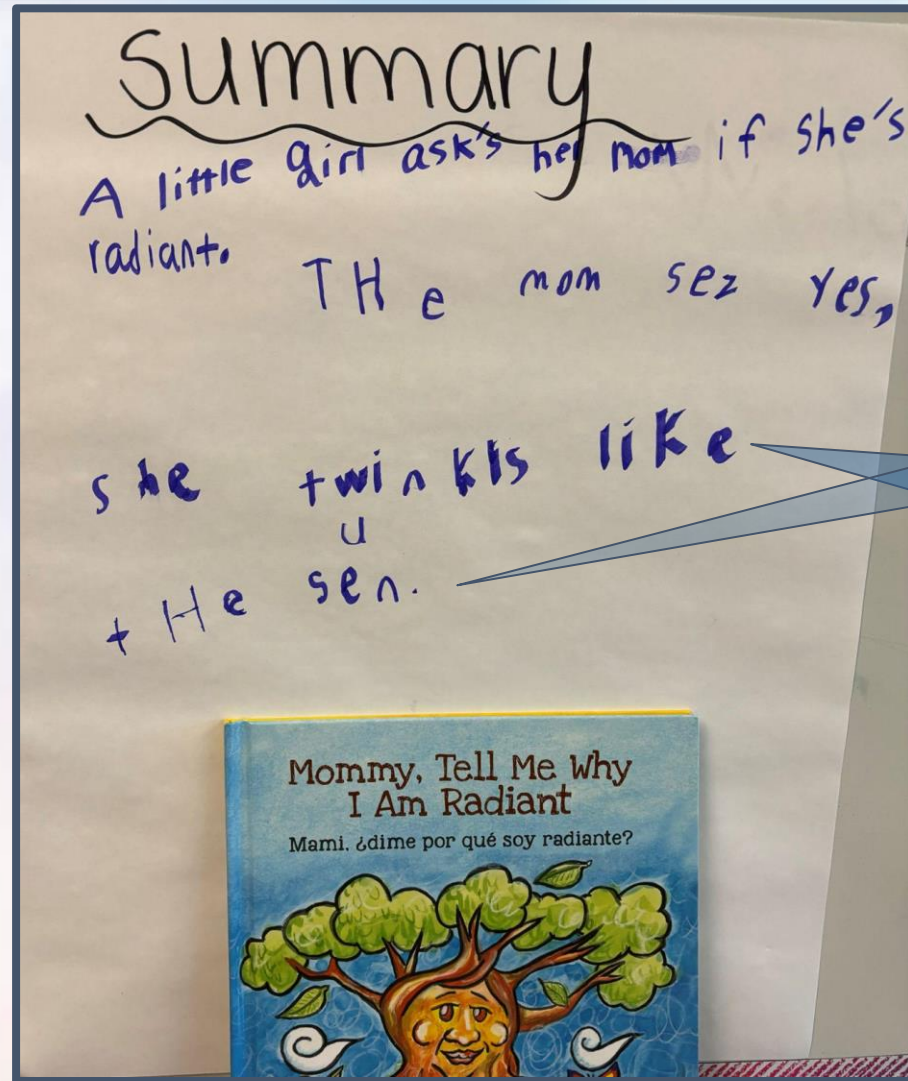 Summary
A little girl ask's her mom if she's
radiant.
THe mom sez yes,
she twinkls like
u
tHe sen.
Mommy, Tell Me Why
I Am Radiant
Mami, ¿dime por qué soy radiante?